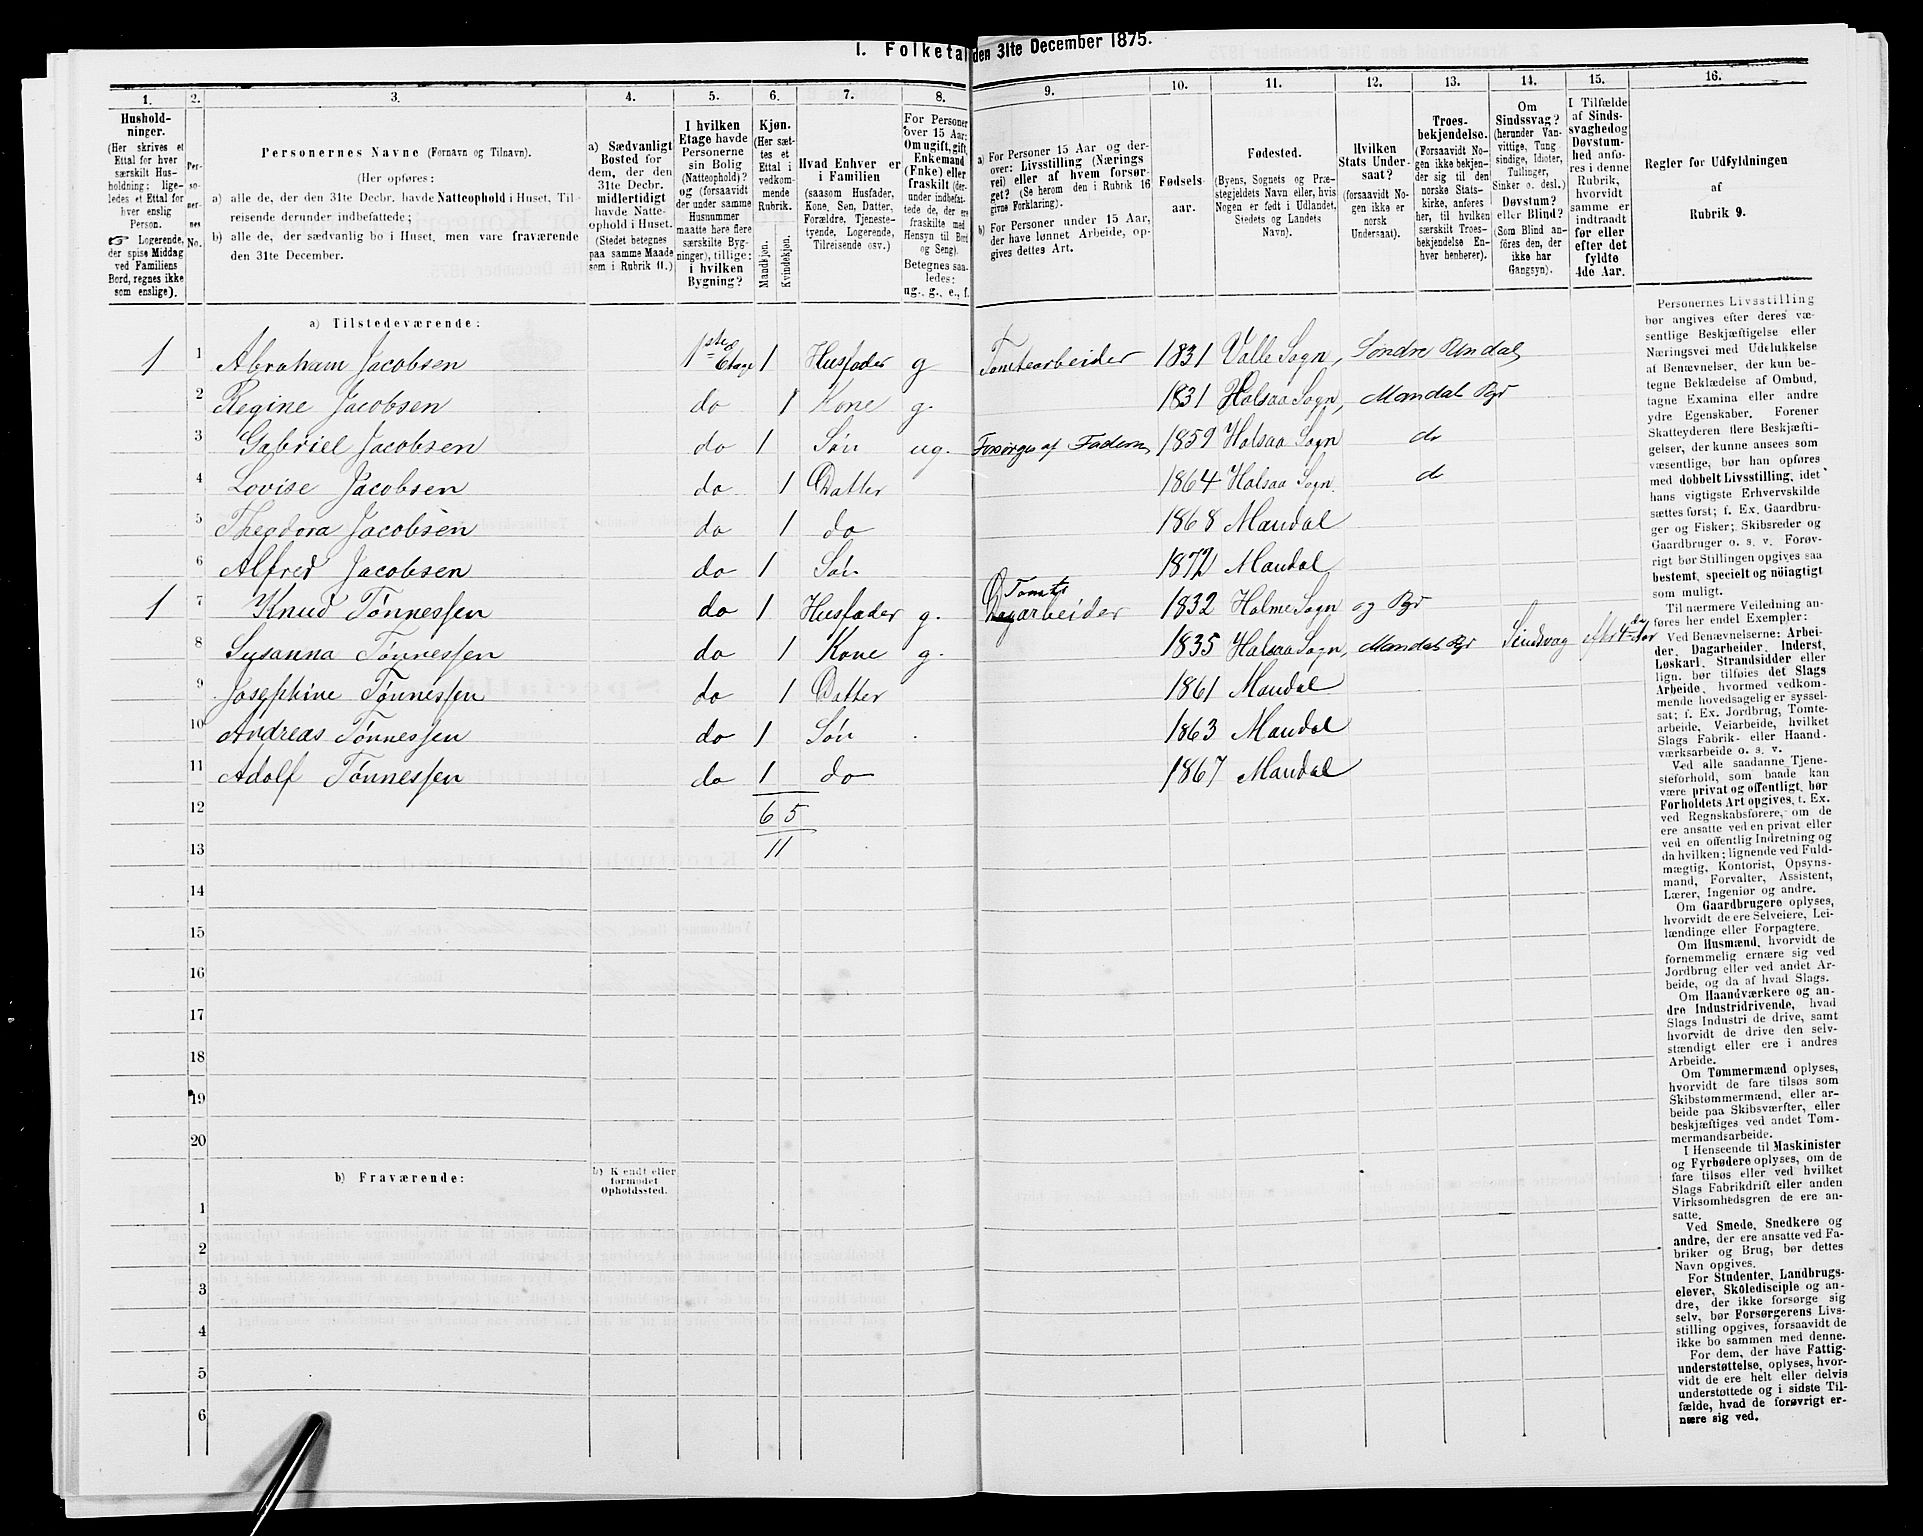 I. Folketal den 31te December 1875.
1. 2. 3. 4. 5. 6. 7. 8. 9. 10. 11. 12. 13. 14. 15. 16.
Hushold-
ninger.
(Her skrives et
Ettal for hver
særskilt Hus-
holdning; lige-
ledes et Ettal for
hver enslig
Person.
☞ Logerende,
der spise Middag
ved Familiens
Bord, regnes ikke
som enslige).
Per-
so-
ner-
nes
No.
Personernes Navne (Fornavn og Tilnavn).
(Her opføres:
a) alle de, der den 31te Decbr. havde Natteophold i Huset, Til-
reisende derunder indbefattede;
b) alle de, der sædvanlig bo i Huset, men vare fraværende
den 31te December.
a) Sædvanligt
Bosted for
dem, der den
31te Decbr.
midlertidigt
havde Natte-
ophold i Huset.
(Stedet betegnes
paa samme Maade
som i Rubrik 11.)
I hvilken
Etage havde
Personerne
sin Bolig
(Natteophold)?
og (forsaavidt
der under samme
Husnummer
maatte høre flere
særskilte Byg-
ninger), tillige:
i hvilken
Bygning?
Kjøn.
(Her sæt-
tes et
Ettal i
vedkom-
mende
Rubrik.
Mandkjøn.
Kvindekjøn.
Hvad Enhver er
i Familien
(saasom Husfader,
Kone, Søn, Datter,
Forældre, Tjeneste-
tyende, Logerende,
Tilreisende osv.)
For Personer
over 15 Aar:
Om ugift, gift,
Enkemand
(Enke) eller
fraskilt (der-
under indbefat-
tede de, der ere
fraskilte med
Hensyn til Bord
og Seng).
Betegnes saa-
ledes:
ug., g., e., f.
a) For Personer 15 Aar og der-
over: Livsstilling (Nærings
vei) eller af hvem forsør-
get? (Se herom den i Rubrik 16
givne Forklaring).
b) For Personer under 15 Aar,
der have lønnet Arbeide, op-
gives dettes Art.
Fødsels-
aar.
Fødested.
(Byens, Sognets og Præ-
stegjeldets Navn eller, hvis
Nogen er født i Udlandet,
Stedets og Landets
Navn).
Hvilken
Stats Under-
saat?
(forsaavidt No-
gen ikke er
norsk
Undersaat).
Troes-
bekjendelse.
(Forsaavidt No-
gen ikke bekjen-
der sig til den
norske Stats-
kirke, anføres
her, til hvilken
særskilt Troes-
bekjendelse En-
hver henhører).
Om
Sindssvag?
(herunder Van-
vittige, Tung
sindige, Idioter,
Tullinger,
Sinker o. desl.)
Døvstum?
eller Blind?
(Som Blind an-
føres den, der
ikke har
Gangsyn).
I Tilfælde
af Sinds-
svaghed og
Døvstum-
hed anfø-
res i denne
Rubrik,
hvorvidt
samme er
indtraadt
før eller
efter det
fyldte
4de Aar.
Regler for Udfyldningen
af
Rubrik 9.
a) Tilstedeværende:
1 1 Abraham Jacobsen 1ste Etage 1 Husfader g Tomtearbeider 1831 Valle Sogn, Søndre Undal
2 Regine Jacobsen do 1 Kone g. 1831 Halsaa Sogn, Mandal Pgr
3 Gabriel Jacobsen do 1 Søn ug. Forsørges af Faderen 1859 Halsaa Sogn do
4 Lovise Jacobsen do 1 Datter 1864 Halsaa Sogn do
5 Theodora Jacobsen do 1 do 1868 Mandal
6 Alfred Jacobsen do 1 Søn 1872 Mandal
1 7 Knud Tønnessen do 1 Husfader g. Tomte Dagarbeider 1832 Holme Sogn og Pgr
8 Susanna Tønnessen do 1 Kone g. 1835 Halsaa Sogn, Mandals Pgr Sindsvag efter 4de Aar
9 Josephine Tønnessen do 1 Datter 1861 Mandal
10 Andreas Tønnessen do 1 Søn 1863 Mandal
11 Adolf Tønnessen do 1 do 1867 Mandal
12 6 5
13 11
14
15
16
17
18
19
20
b) Fraværende:
b) Kjendt eller
formodet
Opholdssted.
1
2
3
4
5
6
Personernes Livsstilling
bør angives efter deres væ-
sentlige Beskjæftigelse eller
Næringsvei med Udelukkelse
af Benævnelser, der kun be-
tegne Beklædelse af Ombud,
tagne Examina eller andre
ydre Egenskaber. Forener
Skatteyderen flere Beskjæfti-
gelser, der kunne ansees som
væsentlige, bør han opføres
med dobbelt Livsstilling, idet
hans vigtigste Erhvervskilde
sættes først; f. Ex. Gaardbru-
ger og Fisker; Skibsreder og
Gaardbruger o. s. v. Forøv-
rigt bør Stillingen opgives saa
bestemt, specielt og nöiagtigt
som muligt.
Til nærmere Veiledning an-
føres her endel Exempler:
Ved Benævnelserne: Arbei-
der, Dagarbeider, Inderst,
Løskarl, Strandsidder eller
lign. bør tilføies det Slags
Arbeide, hvormed vedkom-
mende hovedsagelig er syssel-
sat; f. Ex. Jordbrug, Tomte-
arbeide, Veiarbeide, hvilket
Slags Fabrik- eller Haand-
værksarbeide o. s. v.
Ved alle saadanne Tjene-
steforhold, som baade kan
være privat og offentligt, bør
Forholdets Art opgives, t. Ex.
ved Regnskabsførere, om de
ere ansatte ved en privat eller
ved en offentlig Indretning og
da hvilken; lignende ved Fuld-
mægtig, Kontorist, Opsyns-
mand, Forvalter, Assistent,
Lærer, Ingeniør og andre.
Om Gaardbrugere oplyses,
hvorvidt de ere Selveiere, Lei-
lændinge eller Forpagtere.
Om Husmænd, hvorvidt de
fornemmelig ernære sig ved
Jordbrug eller ved andet Ar-
beide, og da af hvad Slags.
Om Haandværkere og an-
dre Industridrivende, hvad
Slags Industri de drive, samt
hvorvidt de drive den selv-
stændigt eller ere i andres
Arbeide.
Om Tømmermænd oplyses,
hvorvidt de fare tilsøs som
Skibstømmermænd, eller ar-
beide paa Skibsværfter, eller
beskjæftiges ved andet Tøm-
mermandsarbeide.
I Henseende til Maskinister
og Fyrbødere oplyses, om de
fare tilsøs eller ved hvilket
Slags Fabrikdrift eller anden
Virksomhedsgren de ere an-
satte.
Ved Smede, Snedkere og
andre, der ere ansatte ved Fa-
briker og Brug, bør dettes
Navn opgives.
For Studenter, Landbrugs-
elever, Skoledisciple og an-
dre, der ikke forsørge sig
selv, bør Forsørgerens Livs-
stilling opgives, forsaavidt de
ikke bo sammen med denne.
For dem, der have Fattig-
understøttelse, oplyses, hvor-
vidt de ere helt eller delvis
understøttede og i sidste Til-
fælde, hvad de forøvrigt er-
nære sig ved.